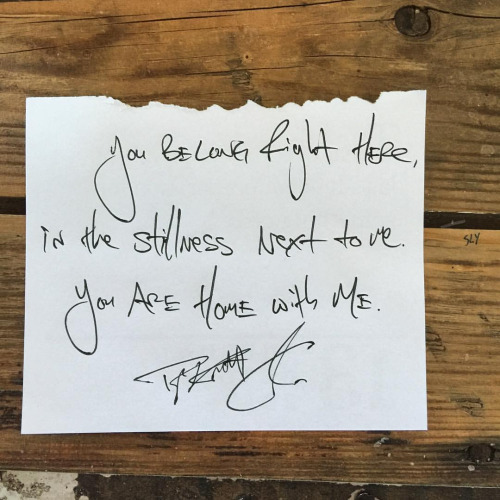 You BELONG Right HERE,
iN the stillNess Next to me.
You ARE HOME with ME.
SLY